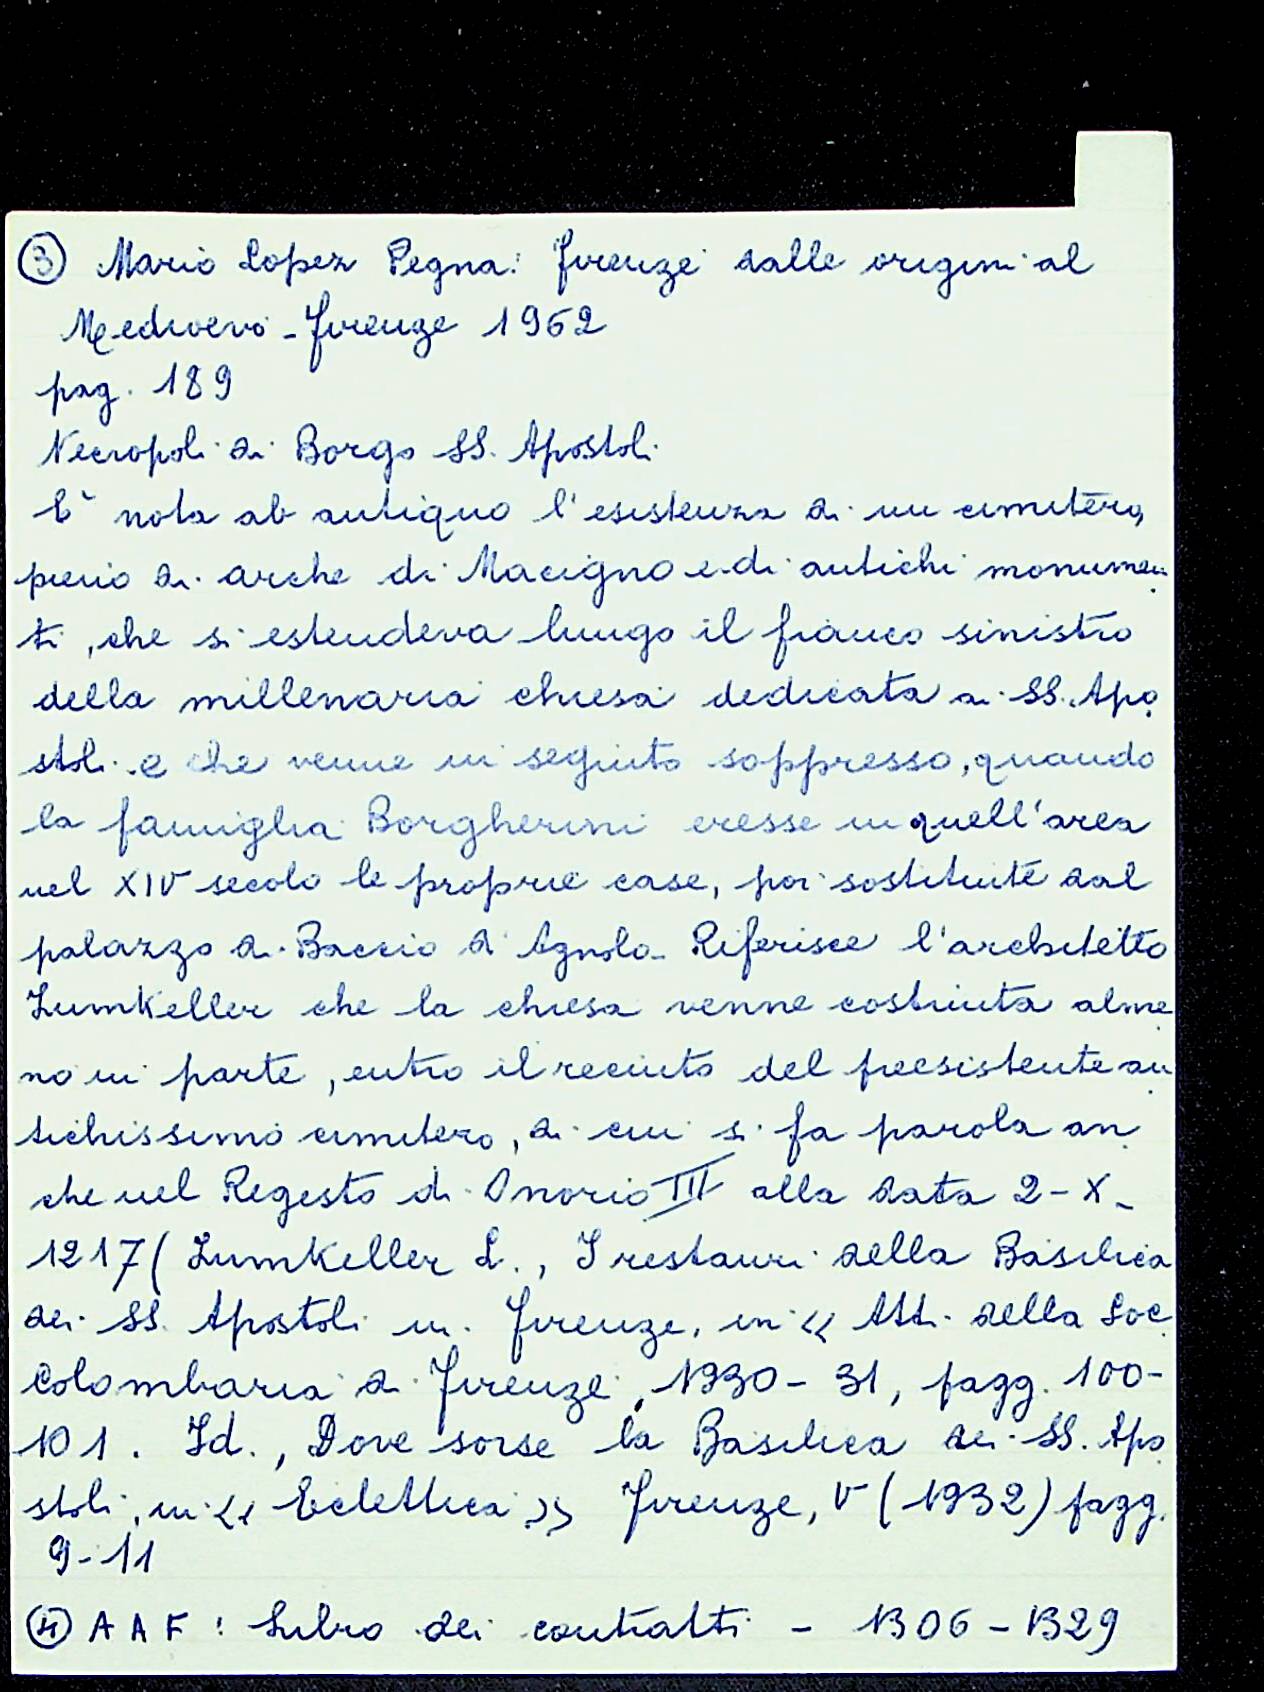 ③ Mario Lopez Pegna: Firenze dalle origini al
Medioevo - Firenze 1962
pag. 189
Necropoli di Borgo SS. Apostoli
E' nota ab antiquo l'esistenza di un cimitero,
pieno di arche di Macigno e di antichi monumen
ti, che si estendeva lungo il fianco sinistro
della millenaria chiesa dedicata ai SS. Apo
stoli e che venne in seguito soppresso, quando
la famiglia Borgherini eresse in quell'area
nel XIV secolo le proprie case, poi sostituite dal
palazzo di Baccio d'Agnolo. Riferisce l'architetto
Zumkeller che la chiesa venne costruita alme
no in parte, entro il recinto del preesistente an
tichissimo cimitero, di cui si fa parola an
che nel Regesto di Onorio III alla data 2-X-
1217 (Zumkeller L., I restauri della Basilica
dei SS. Apostoli in Firenze, in << Atti della Soc
Colombaria di Firenze, 1930-31, pagg. 100-
101. Id., Dove sorse la Basilica dei SS. Apo
stoli, in << Eclettica >> Firenze, V (1932) pagg.
9-11
④ A A F : Libro dei contratti - 1306-1329